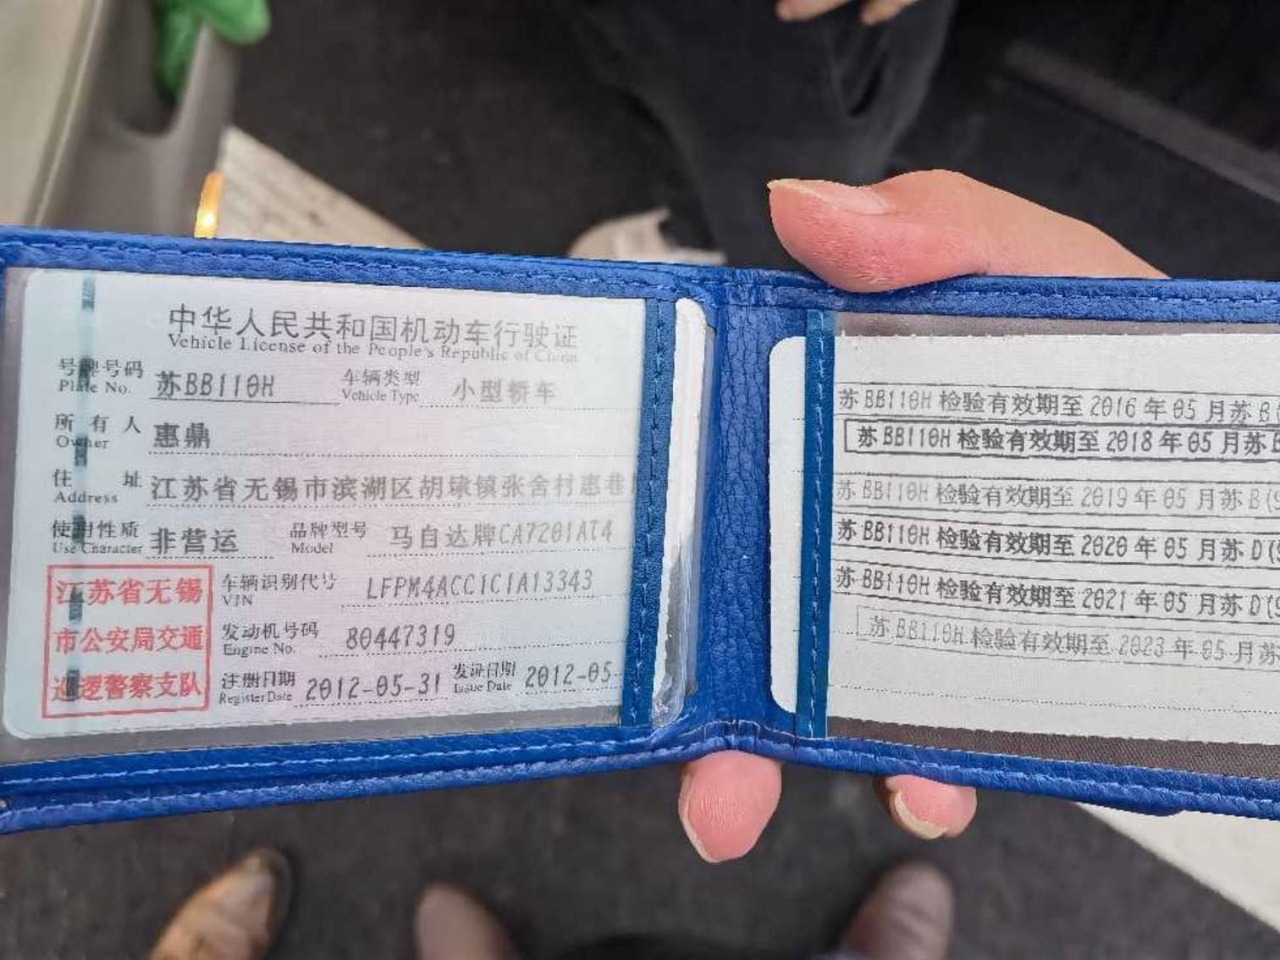 中华人民共和国机动车行驶证
Vehicle License of the People's Republic of China
号牌号码 苏BB110H 车辆类型 小型轿车
Plate No. Vehicle Type
所有人 惠鼎
Owner
住址 江苏省无锡市滨湖区胡埭镇张舍村惠巷
Address
使用性质 非营运 品牌型号 马自达牌CA7201AT4
Use Character Model
江苏省无锡
市公安局交通
巡逻警察支队
车辆识别代号 LFPM4ACC1C1A13343
VIN
发动机号码 80447319
Engine No.
注册日期 2012-05-31 发证日期 2012-05-
Register Date Issue Date
苏BB110H检验有效期至2016年05月苏B
苏BB110H检验有效期至2018年05月苏B
苏BB110H检验有效期至2019年05月苏B(
苏BB110H检验有效期至2020年05月苏D(
苏BB110H检验有效期至2021年05月苏D(
苏BB110H检验有效期至2023年05月苏